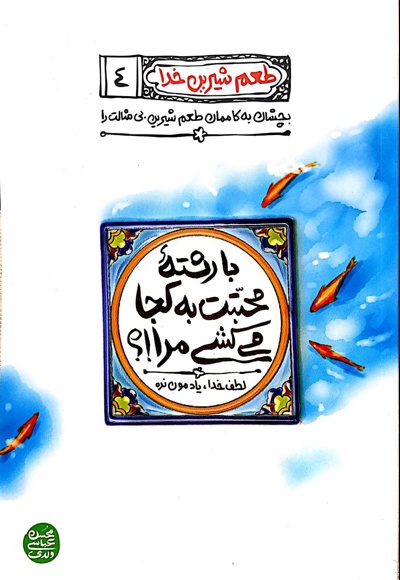 طعم شیرین خدا
۴
بچشان به کاممان طعم شیرین بی مثالت را
با رشتهٔ
محبّت به کجا
می‌کشی مرا!؟
لطف خدا، یادمون نره
محسن
عباسی
ولدی